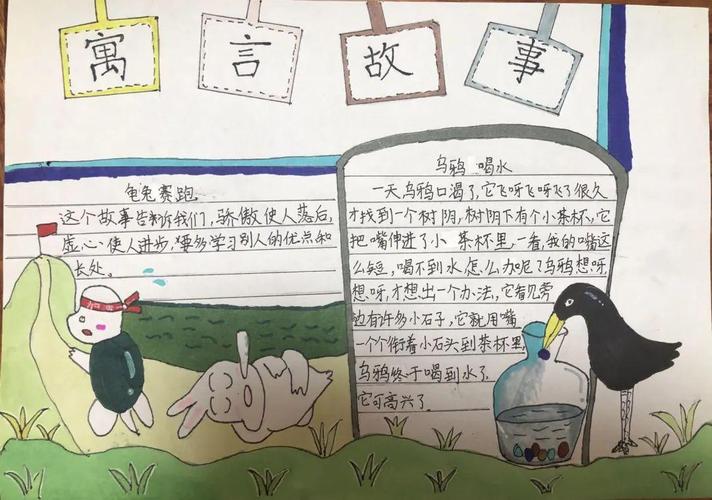 寓言故事
龟兔赛跑
这个故事告诉我们,骄傲使人落后,
虚心使人进步,要多学习别人的优点和
长处。
乌鸦 喝水
一天乌鸦口渴了,它飞呀飞呀飞了很久
才找到一个树阴,树阴下有个小茶杯,它
把嘴伸进了小 茶杯里,一看,我的嘴这
么短,喝不到水怎么办呢?乌鸦想呀,
想呀,才想出一个办法,它看见旁
边有许多小石子,它就用嘴
一个个衔着小石头到茶杯里
乌鸦终于喝到水了
它可高兴了。